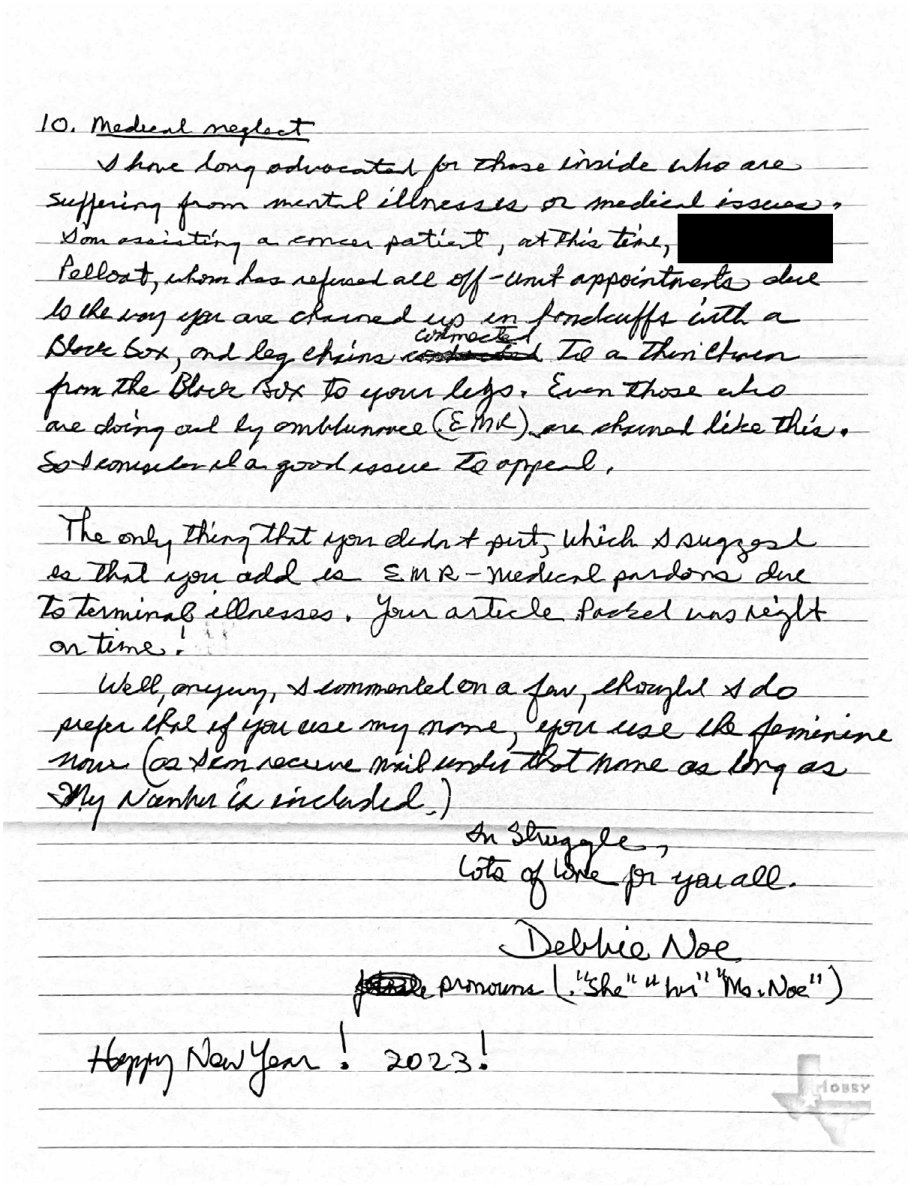 10. Medical neglect
I have long advocated for those inside who are
suffering from mental illnesses or medical issues.
I'm assisting a cancer patient, at this time,
Pelloat, whom has refused all off-unit appointments due
to the way you are chained up in handcuffs with a
Black Box, and leg chains connected to a thin chain
from the Black Box to your legs. Even those who
are doing out by (EMR) are chained like this.
So I consider it a good issue to appeal.
The only thing that you didn't put, which I suggest
is that you add is EMR-Medical pardons due
to terminal illnesses. Your article Packet was right
on time!
Well, anyway, I commented on a few, thought I do
prefer that if you use my name, you use the feminine
(as I can receive mail under that name as long as
My Number is included.)
In Struggle,
Lots of Love for you all.
Debbie Noe
pronouns ("She" "her" "Ms. Noe")
Happy New Year! 2023!
HOBBY